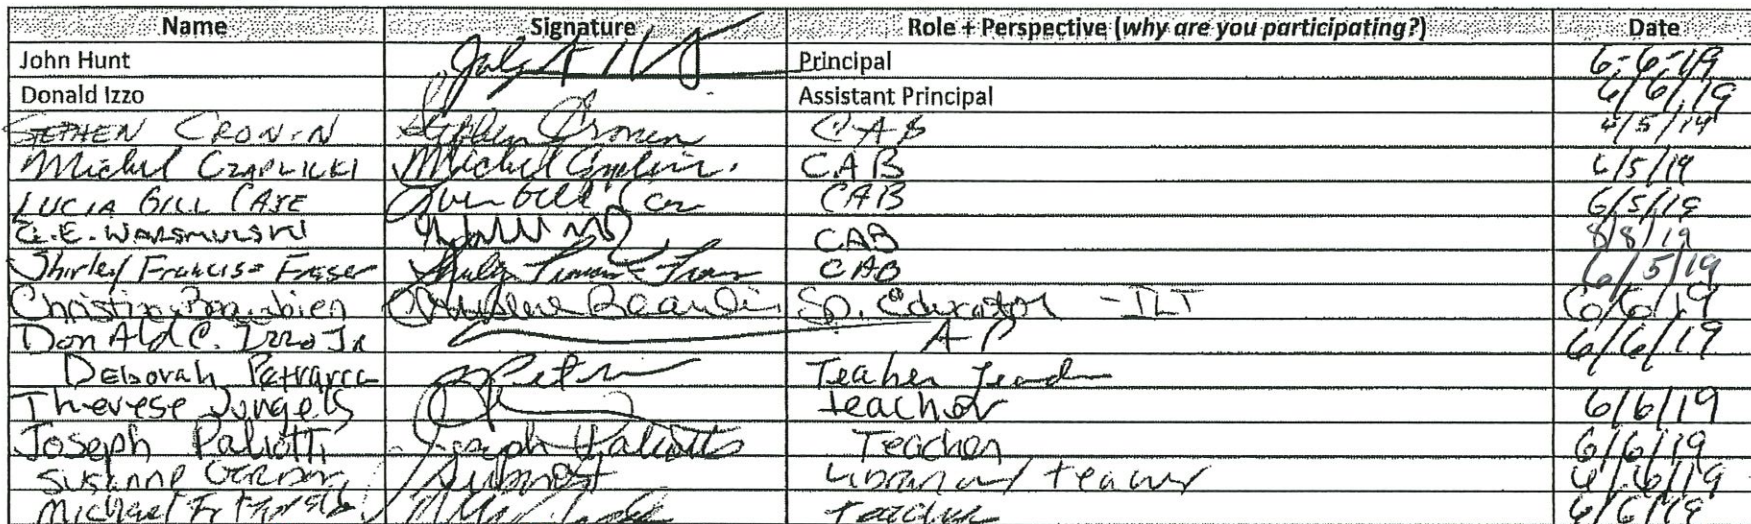 Name Signature Role + Perspective (why are you participating?) Date
John Hunt Principal 6-6-19
Donald Izzo Assistant Principal 6/6/19
STEPHEN CRONIN Stephen Cronin CAB 6/5/19
Michel CZAPLICKI Michel CAB 6/5/19
LUCIA GILL CASE Gill Case CAB 6/5/19
CAB 8/8/19
Shirley Francis-Fraser Shirley Francis-Fraser CAB 6/5/19
Christine Beaubien Christine Beaubien Sp. Educator - ILT 6/6/19
Donald C. Izzo Jr AP 6/6/19
Deborah Petrarca Teacher Leader
Therese Jungels Teacher 6/6/19
Joseph Paliotti Joseph Paliotti Teacher 6/6/19
Susanne Librarian/teacher 6/6/19
Michael Teacher 6/6/19